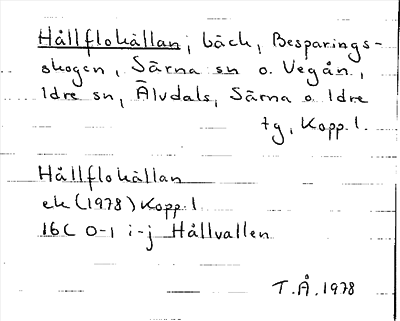 Hållflokällan, bäck, Besparings-
skogen, Särna sn o. Vegån,
Idre sn, Älvdals, Särna o Idre
tg, Kopp. l.
Hållflokällan
ek (1978) Kopp. l
16C 0-1 i-j Hållvallen
T.Å. 1978